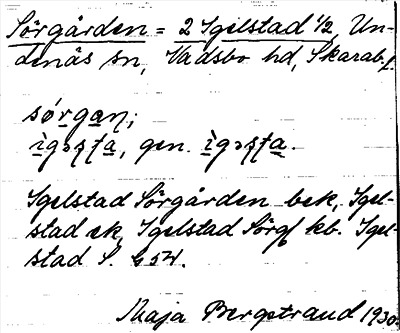 Sörgården = 2 Igelstad 1/2, Un-
denäs sn, Vadsbo hd, Skarab.
sórgaṇ;
ìgəʂʈa, gen. ìgəʂʈa.
Igelstad Sörgården bek, Igel-
stad ek, Igelstad Sörg kb. Igel-
stad S.
Maja Bergstrand 1930.